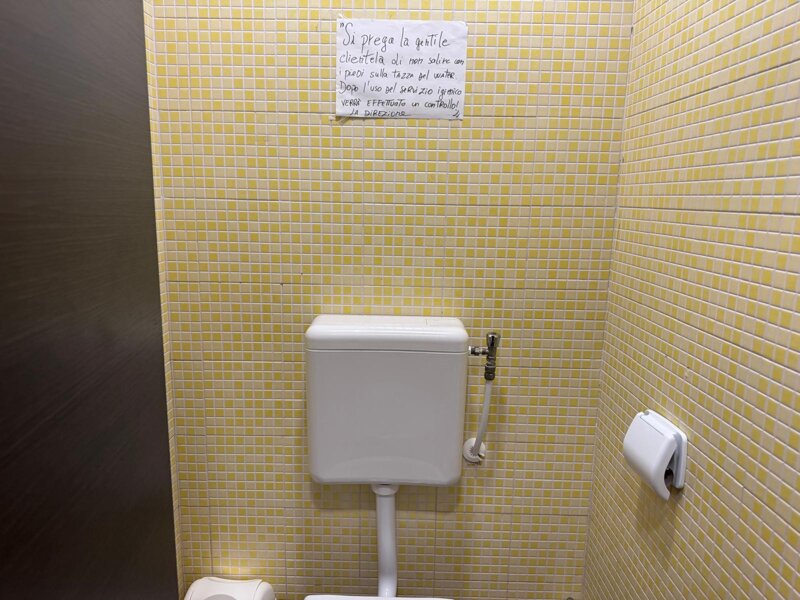 "Si prega la gentile
clientela di non salire con
i piedi sulla tazza del water.
Dopo l'uso del servizio igienico
verrà effettuato un controllo!
La Direzione